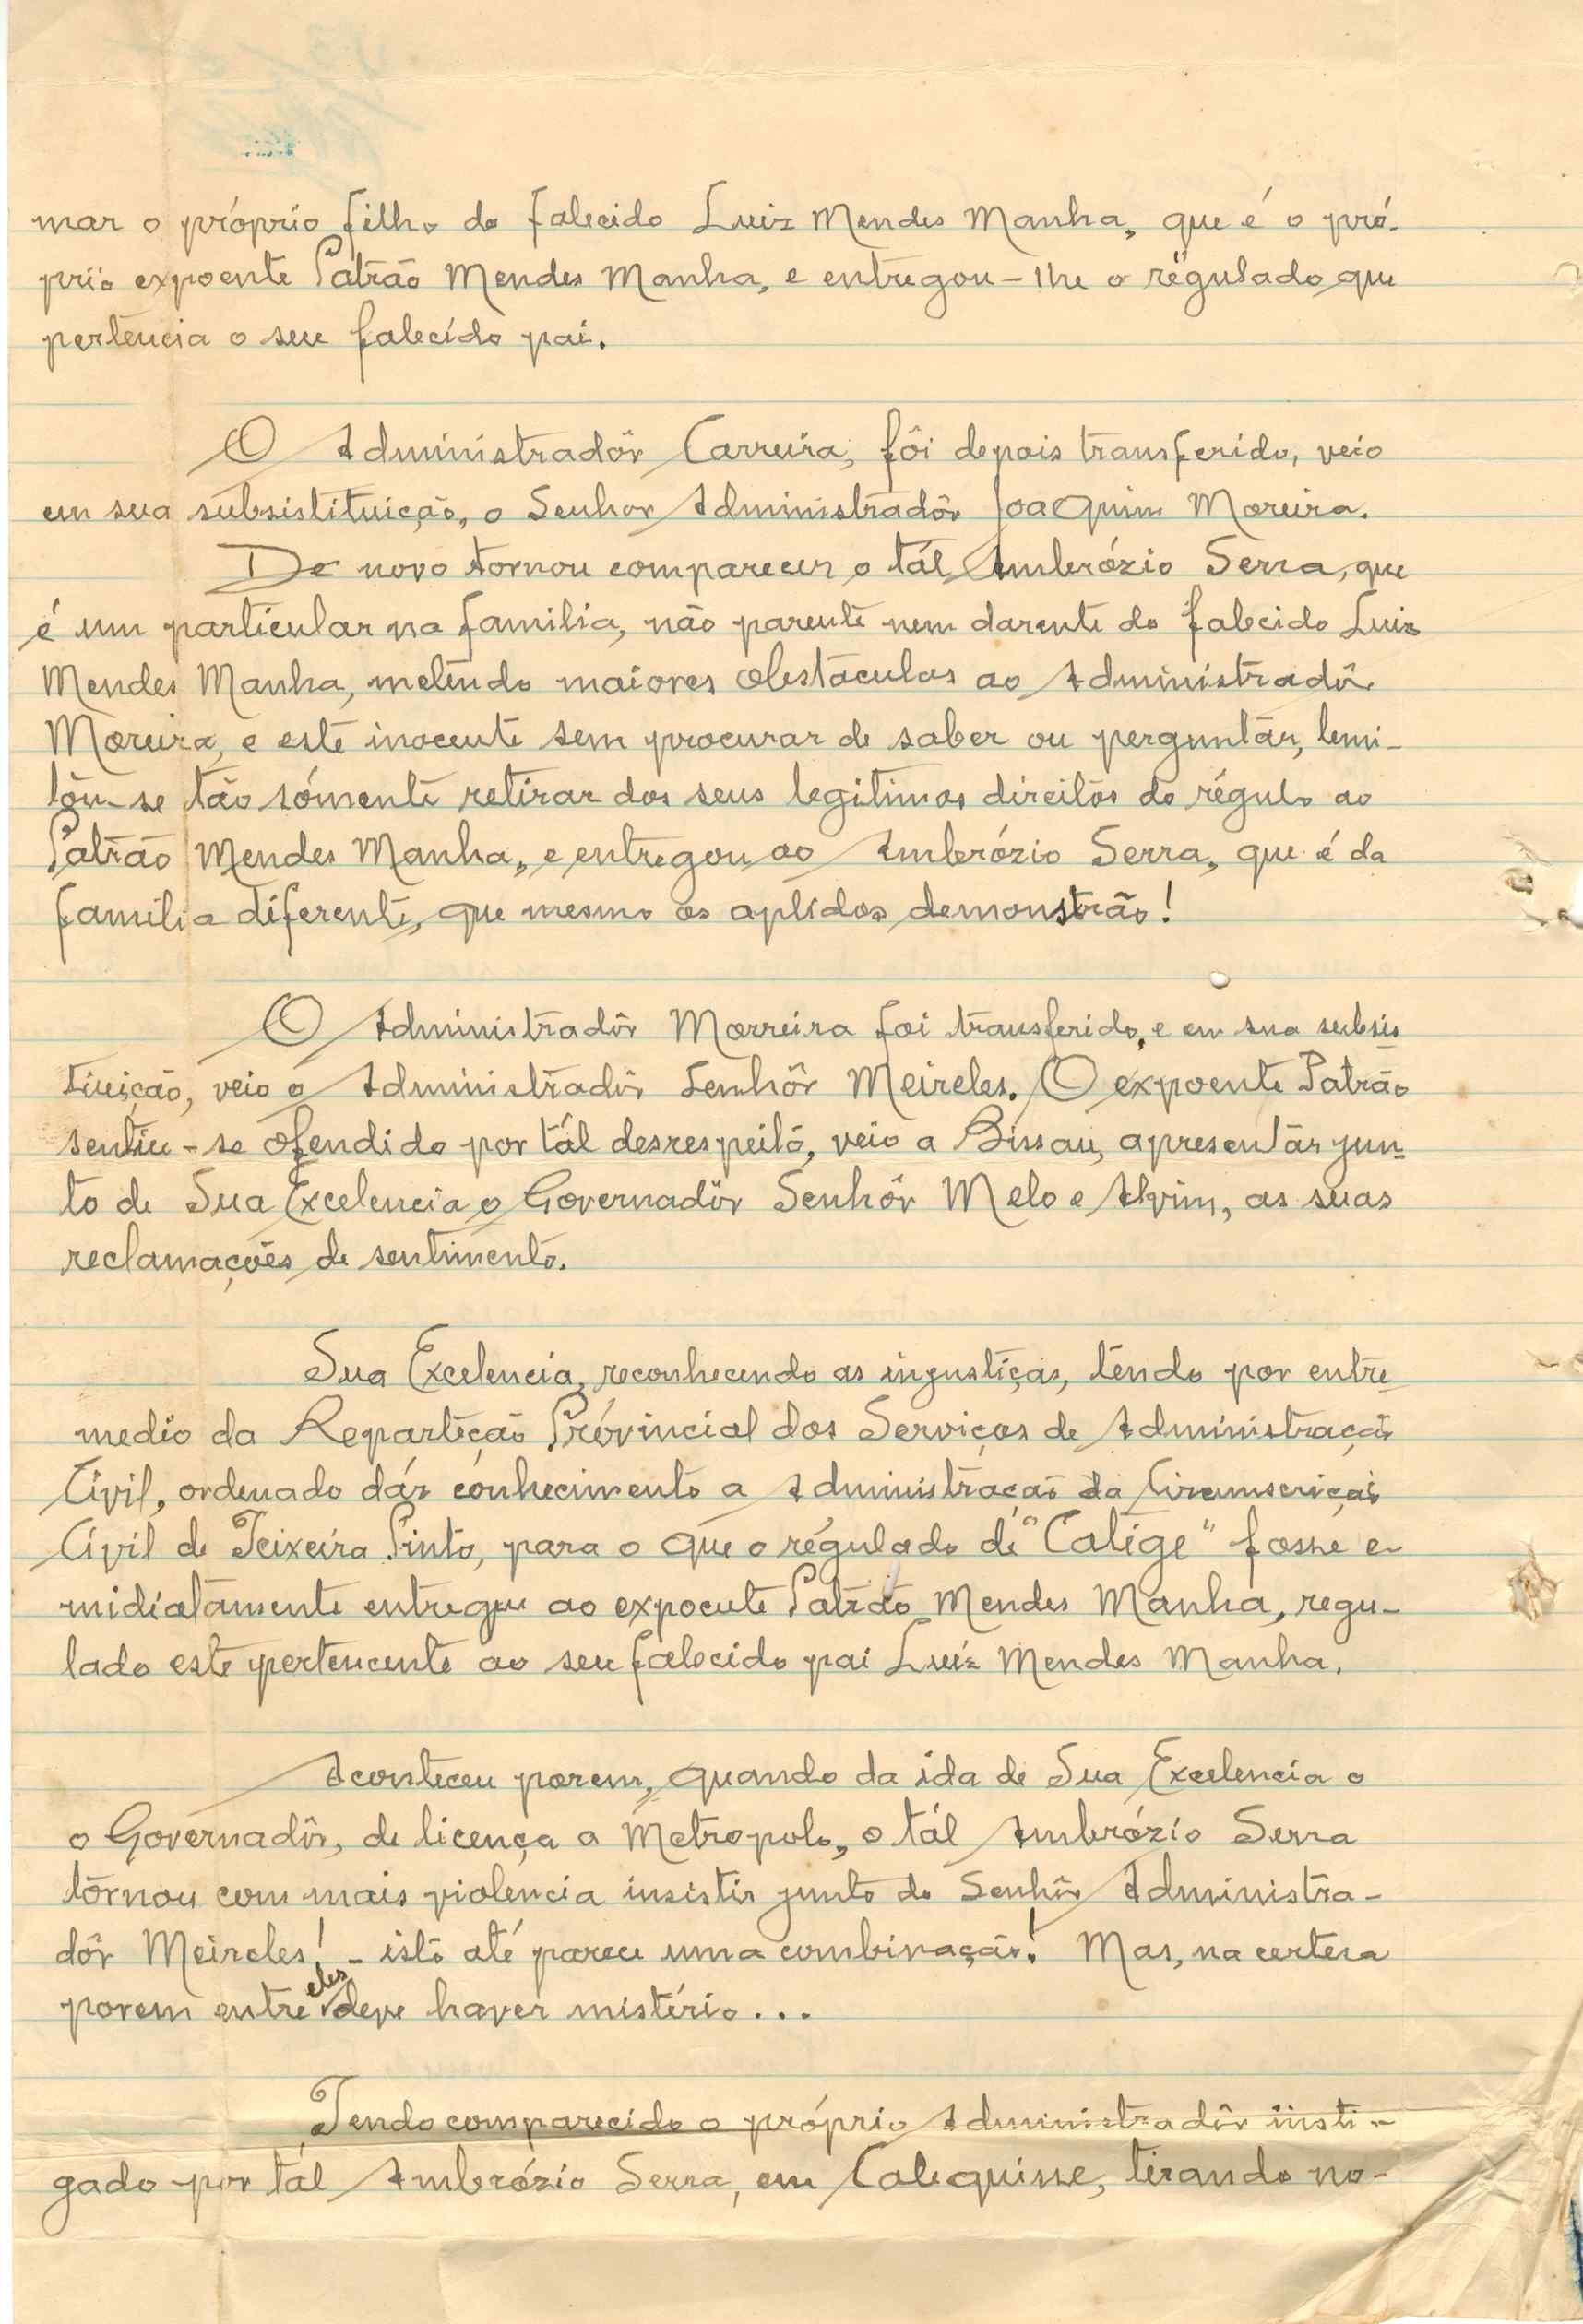 mar o próprio filho do falecido Luiz Mendes Manha, que é o pró-
prio expoente Patrão Mendes Manha, e entregou-lhe o régulado que
pertencia o seu falecído pai.
O Administradôr Carreira, fôi depois transferido, veio
em sua subsistituição, o Senhor Administradôr Joaquim Moreira.
De novo tornou comparecer o tál Ambrózio Serra, que
é um particular na familia, não parente nem darente do falecido Luiz
Mendes Manha, metendo maiores obstaculos ao Administradôr
Moreira, e este inocente sem procurar de saber ou perguntár, lemi-
tôu-se tão sómente retirar dos seus legitimos direitos do régulo ao
Patrão Mendes Manha, e entregou ao Ambrózio Serra, que é da
familia diferente, que mesmo os aplidos demonstrão!
O Administradôr Morreira foi transferido, e em sua subsis
tiuição, veio o Administradôr Senhôr Meireles. O expoente Patrão
sentiu-se ofendido por tál desrespeito, veio a Bissau, apresentár jun-
to de Sua Excelencia o Governadôr Senhôr Melo e Alvim, as suas
reclamações de sentimento.
Sua Excelencia, reconhecendo as injustiças, tendo por entre-
medio da Repartição Próvincial dos Serviços de Administração
Civil, ordenado dár conhecimento a Administração da Circumscrição
Civil de Teixeira Pinto, para o que o régulado de "Catige" fosse e-
midiatamente entregue ao expoente Patrão Mendes Manha, regu-
lado este pertencente ao seu falecido pai Luíz Mendes Manha.
Aconteceu porem, quando da ida de Sua Excelencia o
o Governadôr, de licença a Metropole, o tál Ambrózio Serra
tôrnou com mais violencia insistir junto do Senhôr Administra-
dôr Meireles! - istó até parece uma combinação! Mas, na certeza
porem entre eles deve haver mistério...
Tendo comparecido o próprio Administradôr insti-
gado por tál Ambrózio Serra, em Calequisse, tirando no-